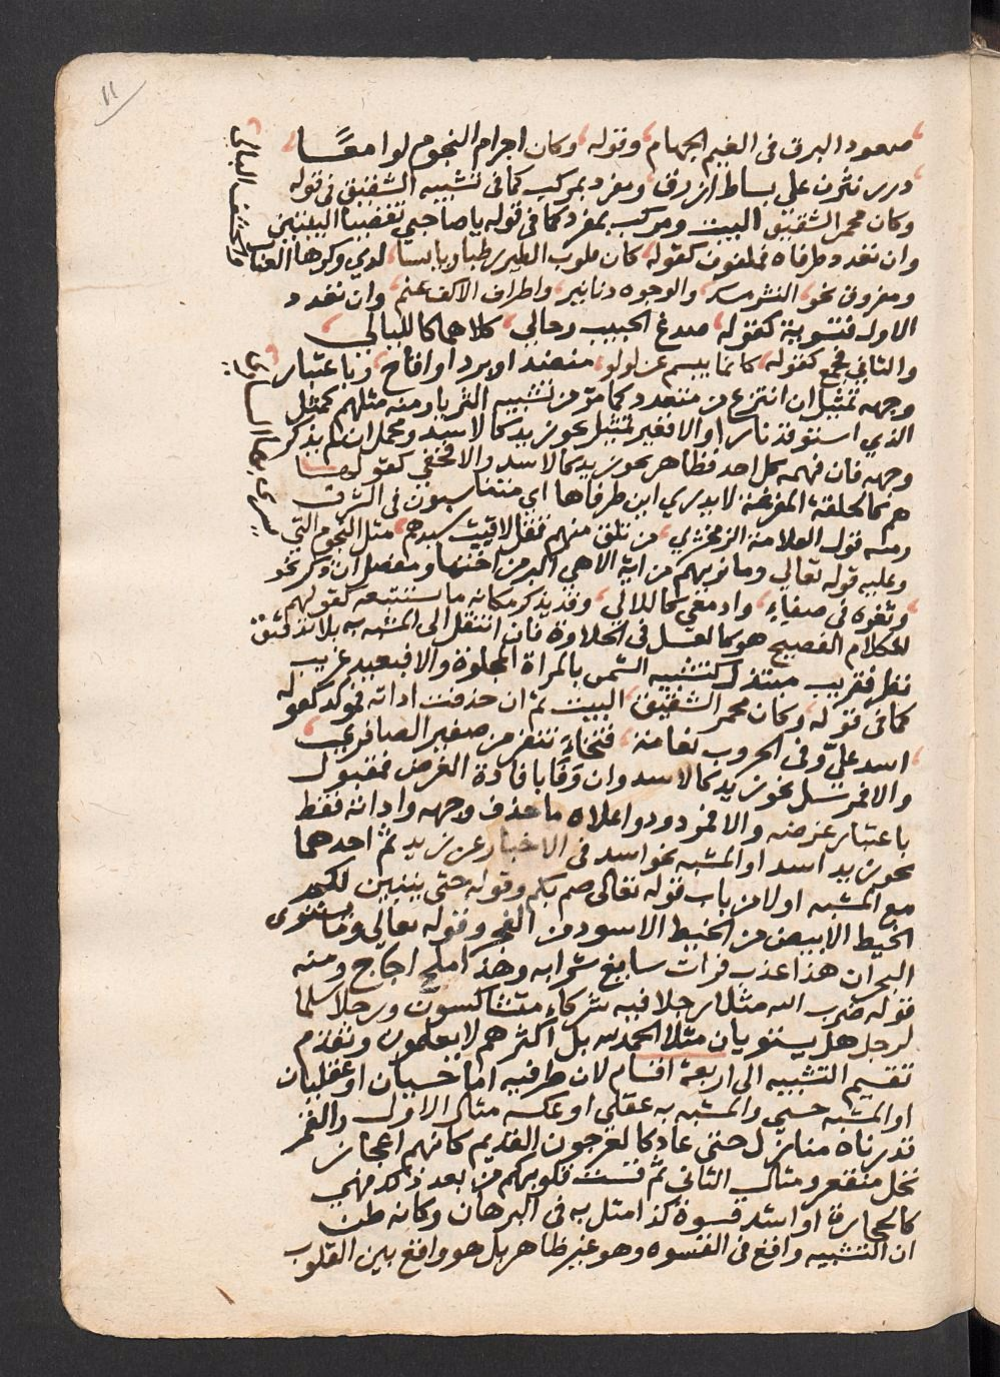 11
صعود البرق فى الغيم الجهام وقوله وكان اجرام النجوم لوامعًا
درر نثرن على بساط ازرق ومفرد بمركب كما فى تشبيه الشقيق فى قوله
وكان محمر الشقيق البيت ومركب بمفرد كما فى قوله يا صاحبي تقصيا البيتين
وان تعدد طرفاه فملفوف كقوله كان قلوب الطير رطبا ويابسا لدي وكرها العناب
والحشف البالي
ومفروق نحو النشر مسك والوجوه دنانير واطراف الاكف عنم وان تعدد
الاول فتسوية كقوله صدغ الحبيب وحالي كلاهما كالليالي
والثاني فجمع كقوله كانما يبسم عن لولو منضد او برد او اقاح وباعتبار
وجهه تمثيل ان انتزع من متعدد كما مر من تشبيه الثريا ومنه مثلهم كمثل
الذي استوقد نارا والا فغير تمثيل نحو زيد كالاسد ومجمل ان لم يذكر
وجهه فان فهمه كل احد فظاهر نحو زيد كالاسد والا فخفي كقولها
هم كالحلقة المفرغة لا يدري اين طرفاها اي متناسبون فى الشرف
ومنه قول العلامة الزمخشري من تلق منهم فقل لاقيت سيدهم مثل النجوم التي
يسري بها الساري
وعليه قوله تعالي وما نريهم من اية الا هي اكبر من اختها ومفصل ان ذكر نحو
وثغره فى صفاء وادمعي كاللالي وقد يذكر مكانه ما يستتبعه كقولهم
للكلام الفصيح هو كالعسل فى الحلاوة فان انتقل الى المشبه به بلا تدقيق
نظر فقريب مبتذل كتشبيه الشمس بالمراة المجلوة والا فبعيد غريب
كما فى قوله وكان محمر الشقيق البيت ثم ان حذفت اداته فموكد كقوله
اسد علي وفى الحروب نعامة فتخاء تنفر من صفير الصافر
والا فمرسل نحو زيد كالاسد وان وفا بافادة الغرض فمقبول
باعتبار غرضه والا فمردود واعلاه ما حذف وجهه واداته فقط
نحو زيد اسد او المشبه نحو اسد فى الاخبار عن زيد ثم احدهما
مع المشبه او لا من باب قوله تعالى صم بكم وقوله حتى يتبين لكم
الخيط الابيض من الخيط الاسود من الفجر وقوله تعالى وما يستوى
البحران هذا عذب فرات سايغ شرابه وهذا ملح اجاج ومنه
قوله ضرب الله مثلا رجلا فيه شركاء متشاكسون ورجلا سلما
لرجل هل يستويان مثلا الحمد لله بل اكثرهم لا يعلمون وتقدم
تقسيم التشبيه الى اربعة اقسام لان طرفيه اما حسيان او عقليان
او المشبه حسي والمشبه به عقلي او عكسه مثال الاول والقمر
قدرناه منازل حتى عاد كالعرجون القديم كانهم اعجاز
نخل منقعر ومثال الثاني ثم قست قلوبكم من بعد ذلك فهي
كالحجارة او اشد قسوة كذا مثل به فى البرهان وكانه ظن
ان التشبيه واقع فى القسوه وهو غير ظاهر بل هو واقع بين القلوب